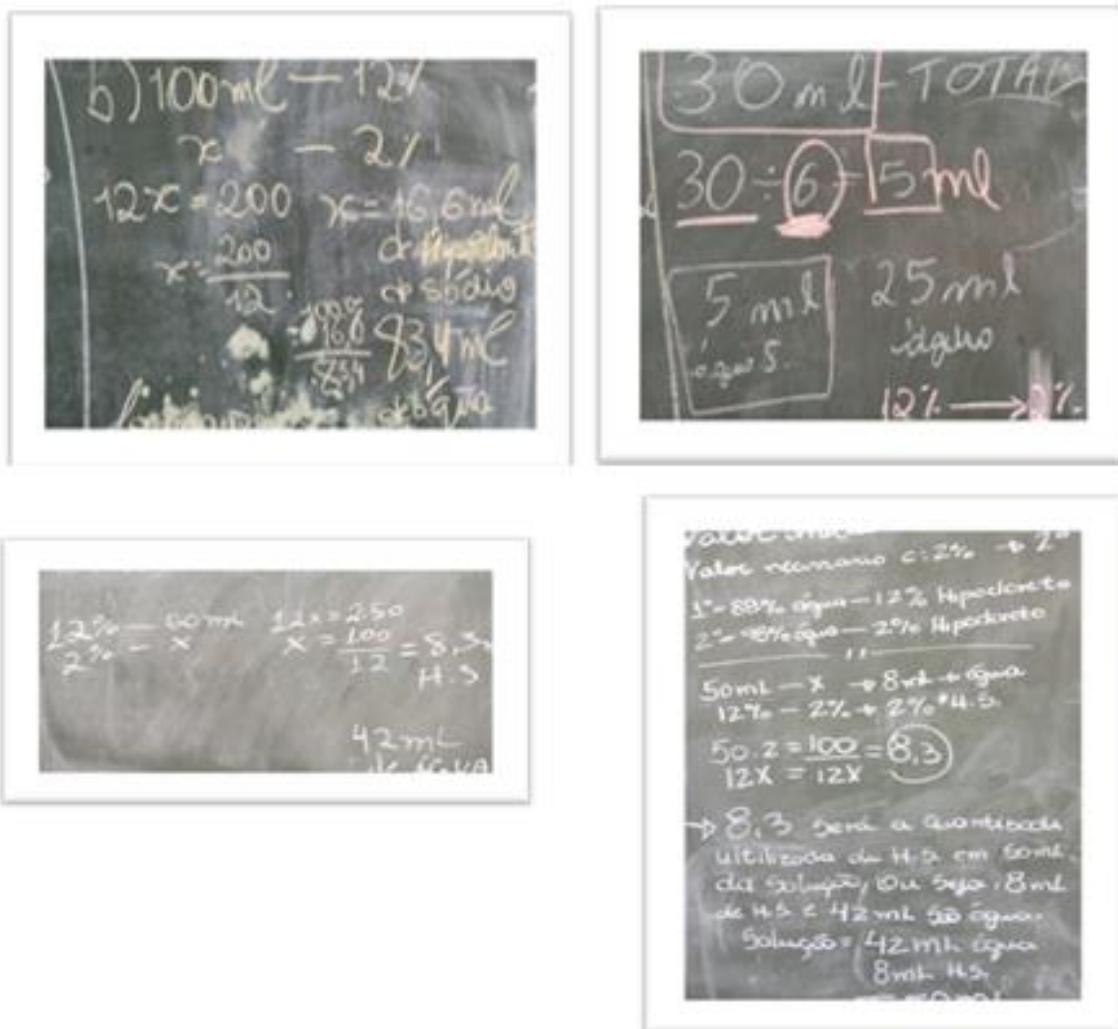 b) 100ml — 12%
x — 2%
12x = 200 x = 16,6ml
x = 200
12
de sódio
83,4 83,4ml
30 ml - TOTAL
30 ÷ 6 = 5 ml
5 ml 25 ml
água
12% → 2%
12% — 50 mL 12x = 2.50
2% — x x = 100 = 8,3
12 H.S
42 mL
Valor
Valor c: 2% → 2º
1º- 88% água — 12% Hipoclorito
2º- 98% água — 2% Hipoclorito
50mL — x → 8mL + água
12% — 2% → 2% H.S.
50.2 = 100 = 8,3
12X = 12X
→ 8,3 será a quantidade
utilizada de H.S. em 50mL
da solução, ou seja, 8mL
de H.S e 42 mL só água.
Solução = 42 mL água
8mL H.S.